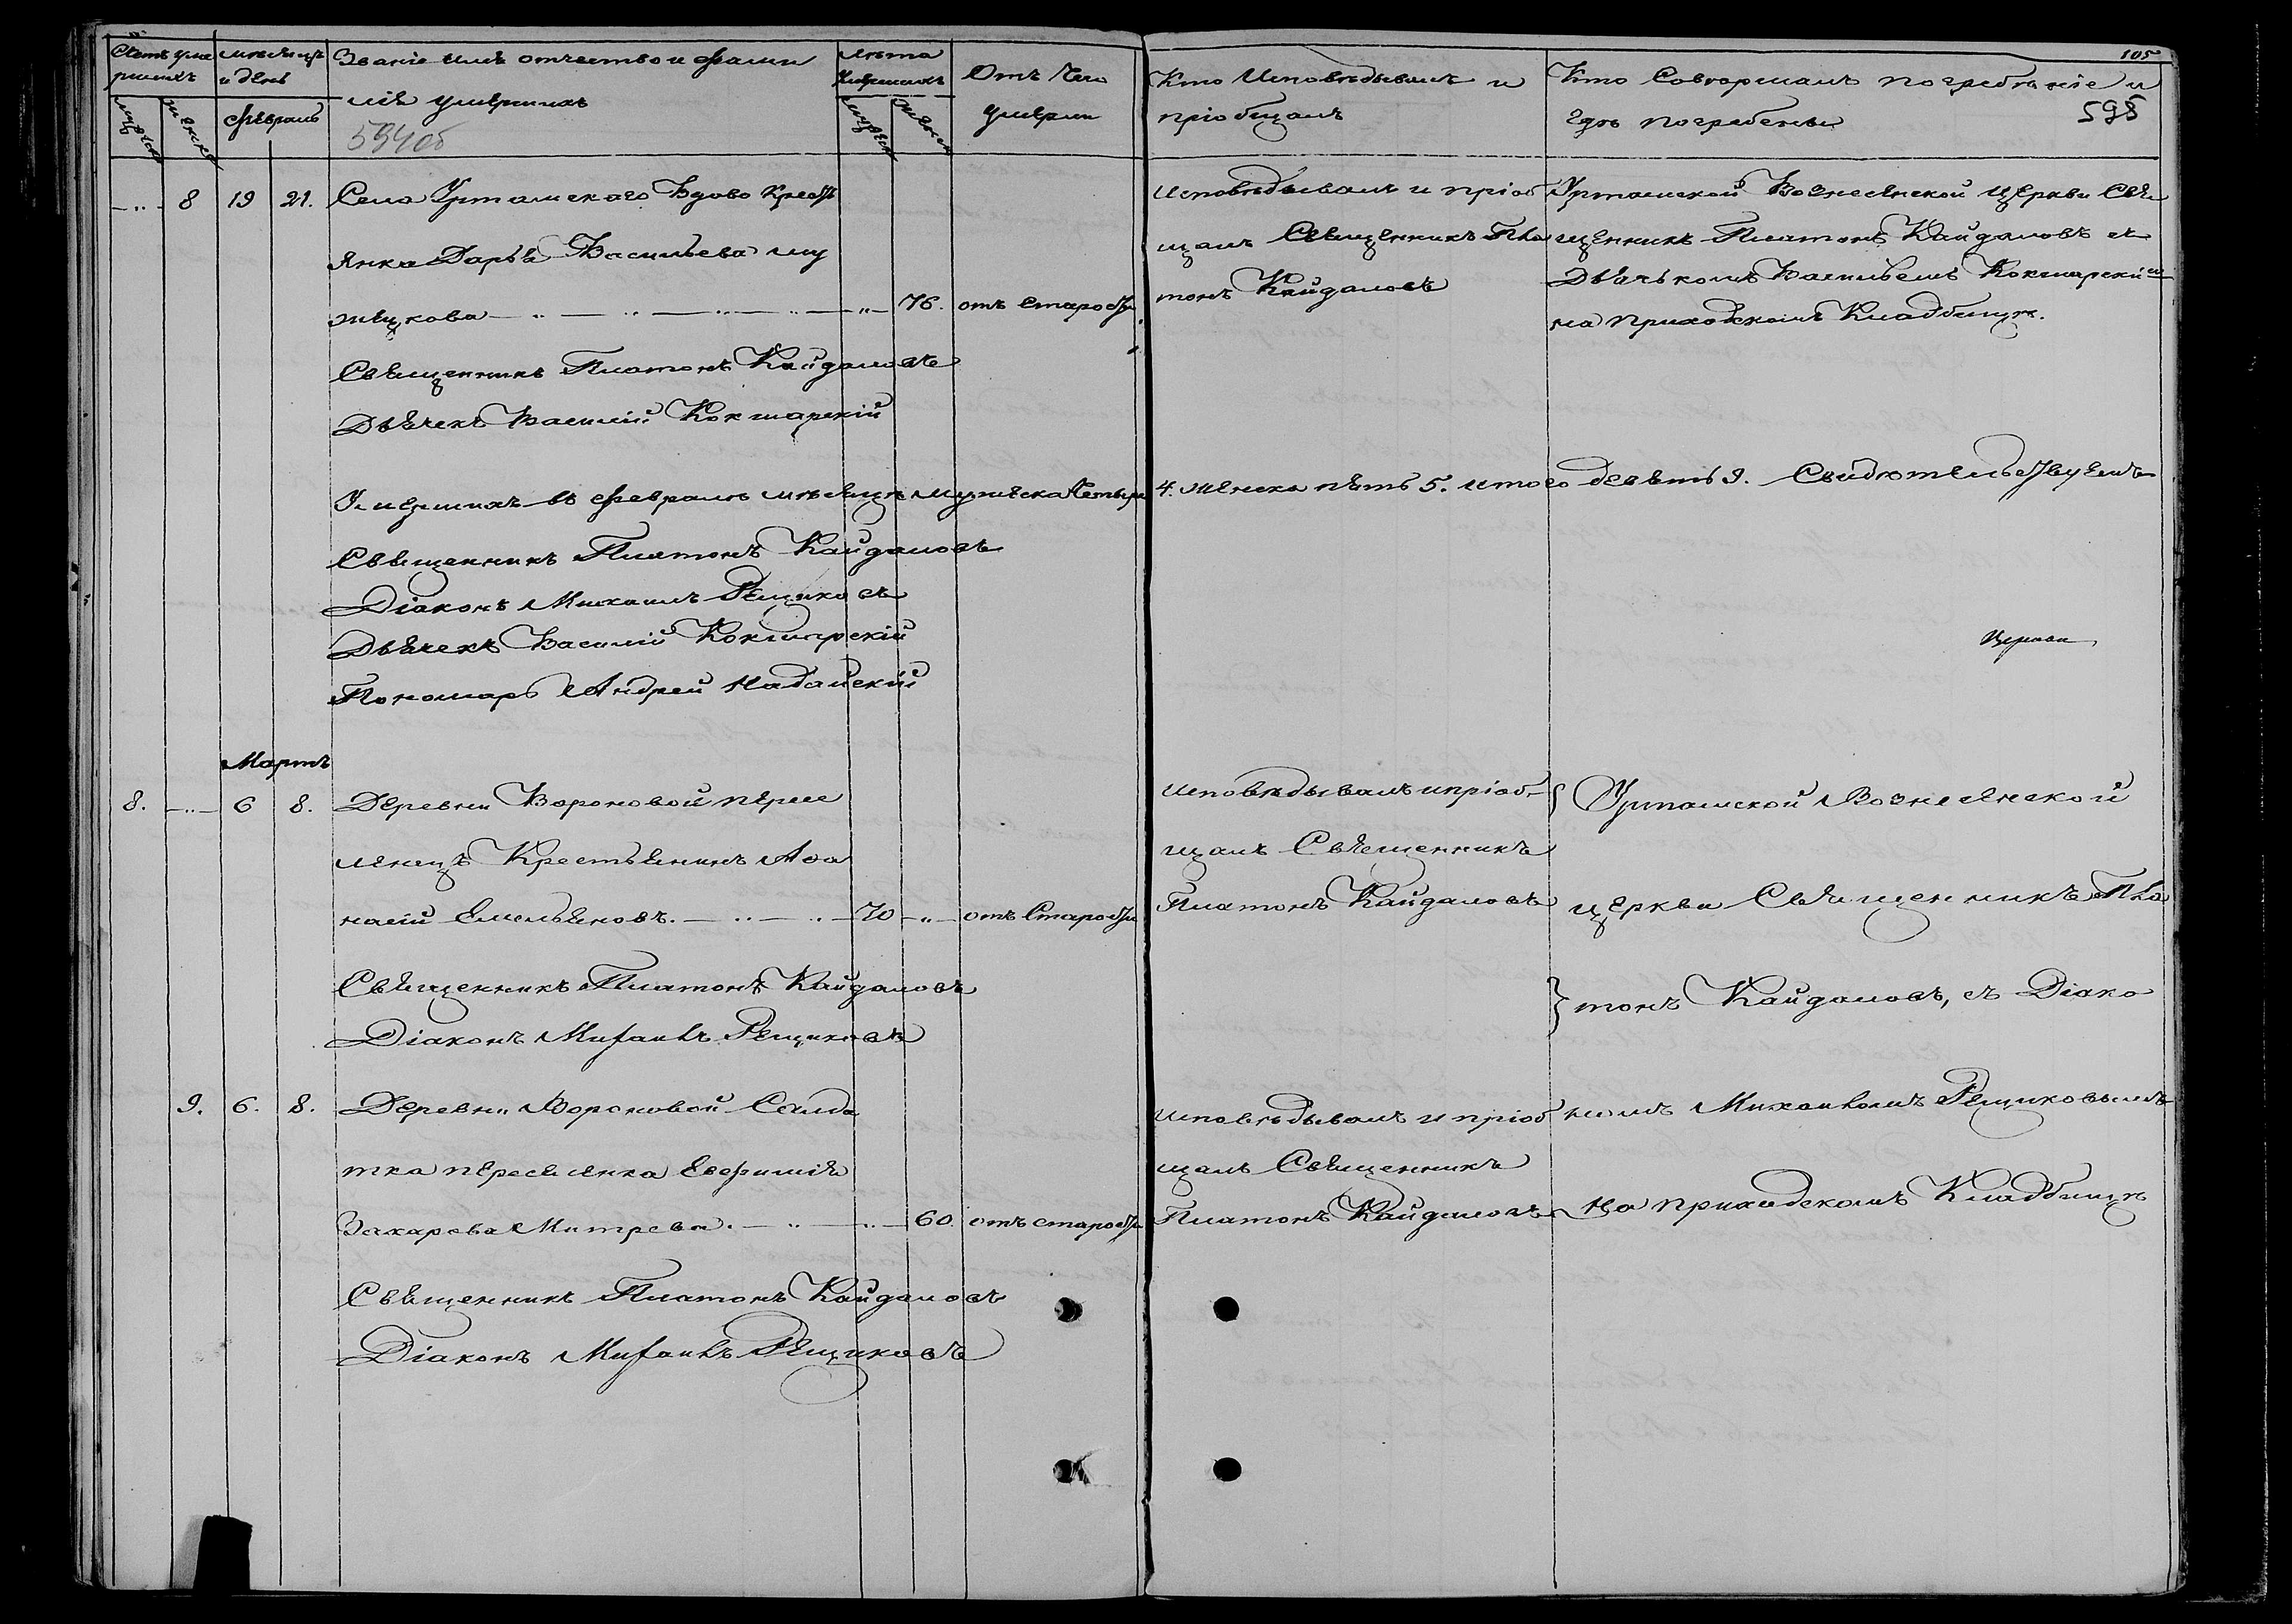 Счетъ уме
ршихъ
мѣсяцъ
и день
Званіе имя отчество и фами
лія умершихъ
лѣта
умершихъ
Отъ чего
умерли
Кто Исповѣдывалъ и
пріобщалъ
Кто Совершалъ погребеніе и
гдѣ погребены
105
595
муж.
женск.
Февраль
594об
8 19 21. Села Уртамскаго Вдова Крестья
янка Дарья Васильева му
76. отъ старости
Исповѣдывалъ и пріоб
щалъ Священникъ Пла
тонъ Кайдаловъ
Уртамской Вознесенской Церкви Свя
щенникъ Платонъ Кайдаловъ съ
Дьячькомъ Васильемъ Кокшарскимъ
на приходскомъ Кладбищѣ.
Священникъ Платонъ Кайдаловъ
Дьячекъ Василій Кокшарскій
Умершихъ въ Февралѣ мѣсяцѣ мужеска четыре 4. женска пять 5. итого девять 9. Свидѣтельствуемъ
Священникъ Платонъ Кайдаловъ
Діаконъ Михаилъ Рещиковъ
Дьячекъ Василій Кокшарскій
Пономарь Андрей Надайскій
Церкви
Мартъ
8. 6 8. Деревни Вороновой пересе
ленецъ Крестьянинъ Аѳа
насій Емельяновъ. 70 отъ Старости
Исповѣдывалъ и пріоб-
щалъ Священникъ
Платонъ Кайдаловъ
Уртамской Вознесенской
церкви Священникъ Пла
тонъ Кайдаловъ, съ Діако
Священникъ Платонъ Кайдаловъ
Діаконъ Михаилъ Рещиковъ
9. 6. 8. Деревни Вороновой Солда
тка переселенка Евфимія
Захарова Митрева. 60 отъ старости
Исповѣдывалъ и пріоб
щалъ Священникъ
Платонъ Кайдаловъ
номъ Михаиломъ Рещиковымъ
На приходскомъ Кладбищѣ
Священникъ Платонъ Кайдаловъ
Діаконъ Михаилъ Рещиковъ